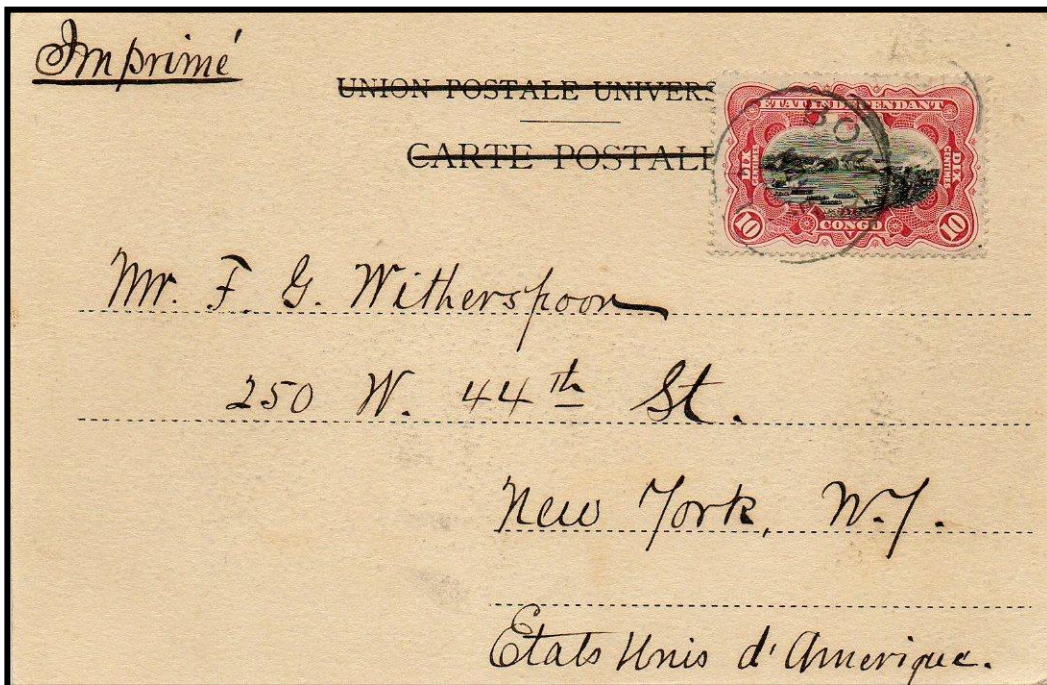 Imprimé
UNION POSTALE UNIVERS
CARTE POSTALE
ÉTAT INDÉPENDANT
DIX CENTIMES
DIX CENTIMES
10
CONGO
10
Mr. F. G. Witherspoon
250 W. 44th St.
New York, N.Y.
Etats Unis d'Amerique.